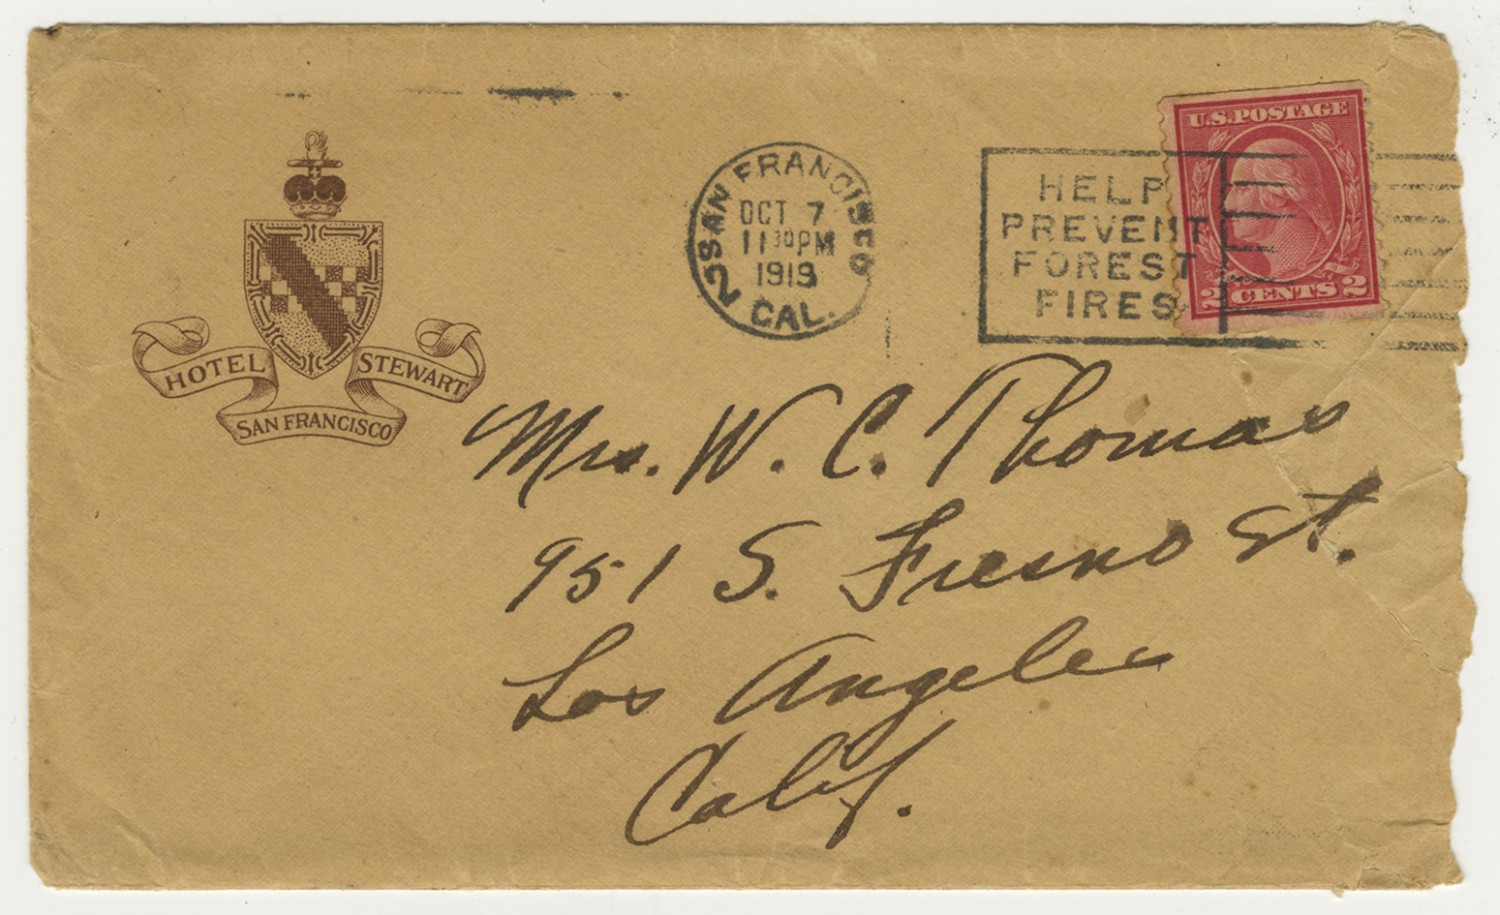 HOTEL STEWART
SAN FRANCISCO
SAN FRANCISCO
OCT 7
11 30 PM
1919
CAL.
2
HELP
PREVENT
FOREST
FIRES
U.S. POSTAGE
2 CENTS 2
Mrs. W. C. Thomas
951 S. Fresno St.
Los Angeles
Calif.